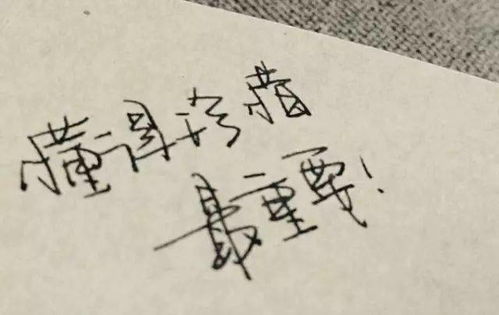 懂得珍惜
最重要!